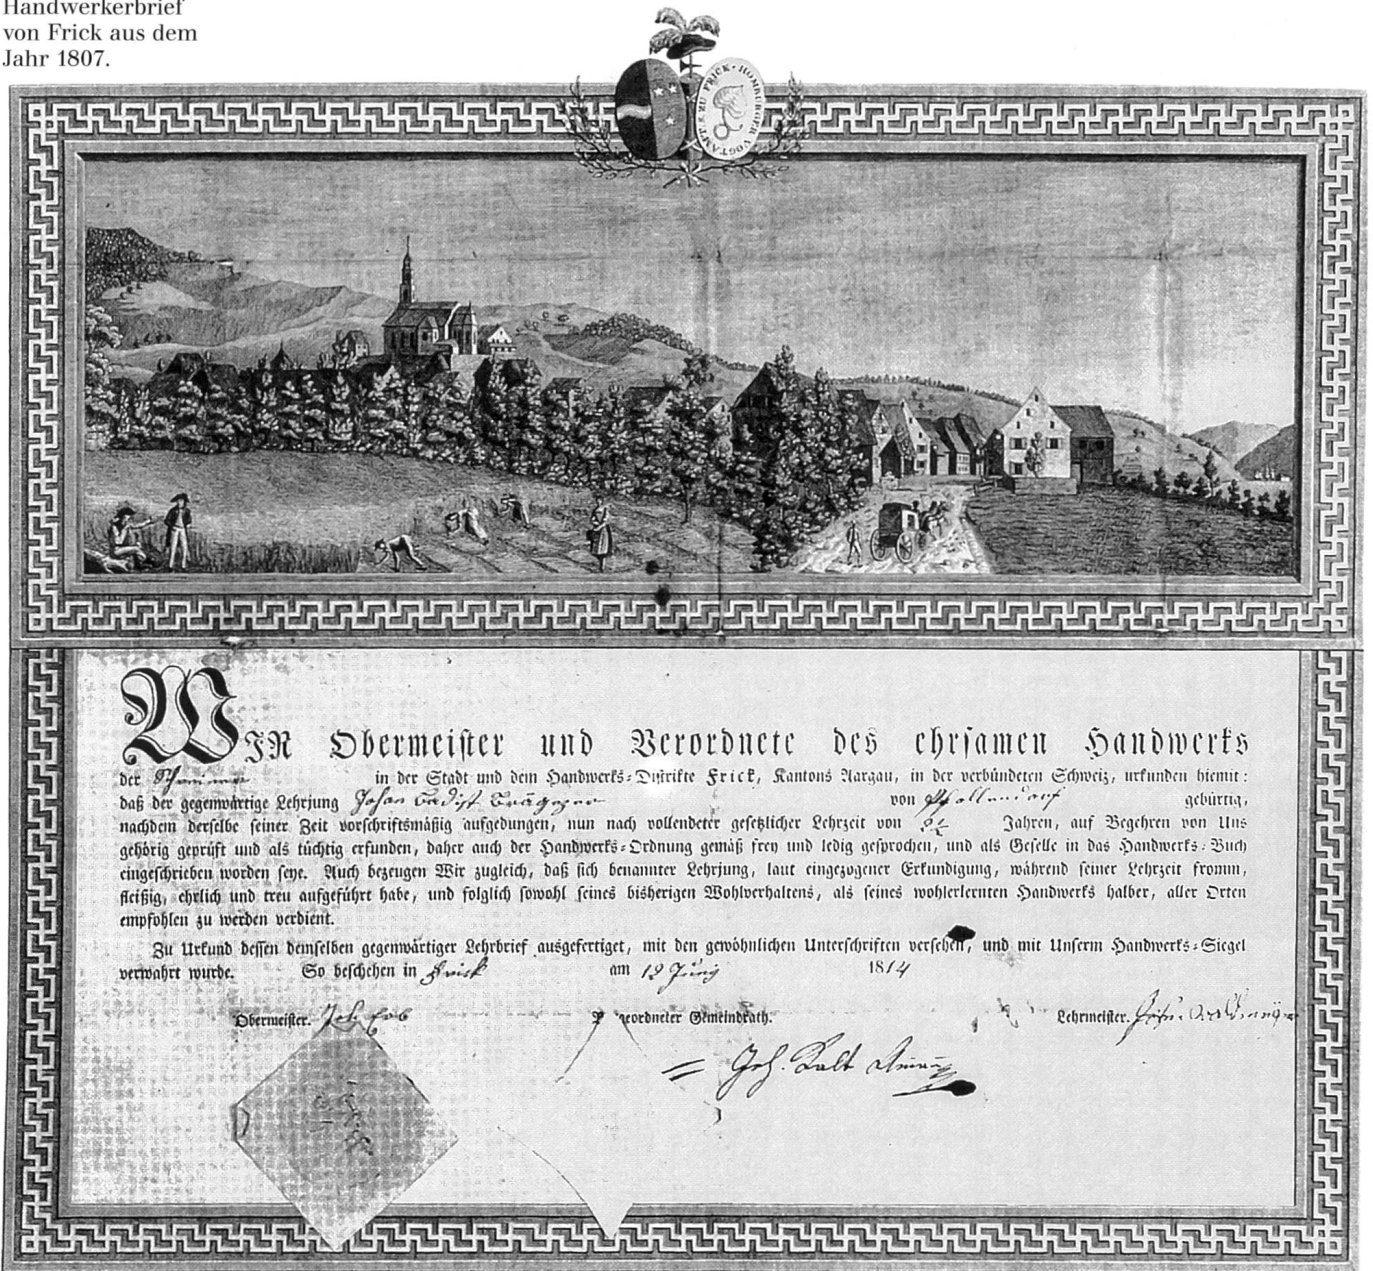 Handwerkerbrief
von Frick aus dem
Jahr 1807.
VOGTAMPTS ZU FRICK · HOMBURGER
WIR Obermeister und Verordnete des ehrsamen Handwerks
der in der Stadt und dem Handwerks-Distrikte Frick, Kantons Aargau, in der verbündeten Schweiz, urkunden hiemit:
daß der gegenwärtige Lehrjung Johan Badist von Pfollendorf gebürtig,
nachdem derselbe seiner Zeit vorschriftsmäßig aufgedungen, nun nach vollendeter gesetzlicher Lehrzeit von Jahren, auf Begehren von Uns
gehörig geprüft und als tüchtig erfunden, daher auch der Handwerks-Ordnung gemäß frey und ledig gesprochen, und als Geselle in das Handwerks-Buch
eingeschrieben worden seye. Auch bezeugen Wir zugleich, daß sich benannter Lehrjung, laut eingezogener Erkundigung, während seiner Lehrzeit fromm,
fleißig, ehrlich und treu aufgeführt habe, und folglich sowohl seines bisherigen Wohlverhaltens, als seines wohlerlernten Handwerks halber, aller Orten
empfohlen zu werden verdient.
Zu Urkund dessen demselben gegenwärtiger Lehrbrief ausgefertiget, mit den gewöhnlichen Unterschriften versehen, und mit Unserm Handwerks-Siegel
verwahrt wurde. So beschehen in Frick am 12 Juny 1814
Obermeister. geordneter Gemeindrath. Lehrmeister.
Joh.